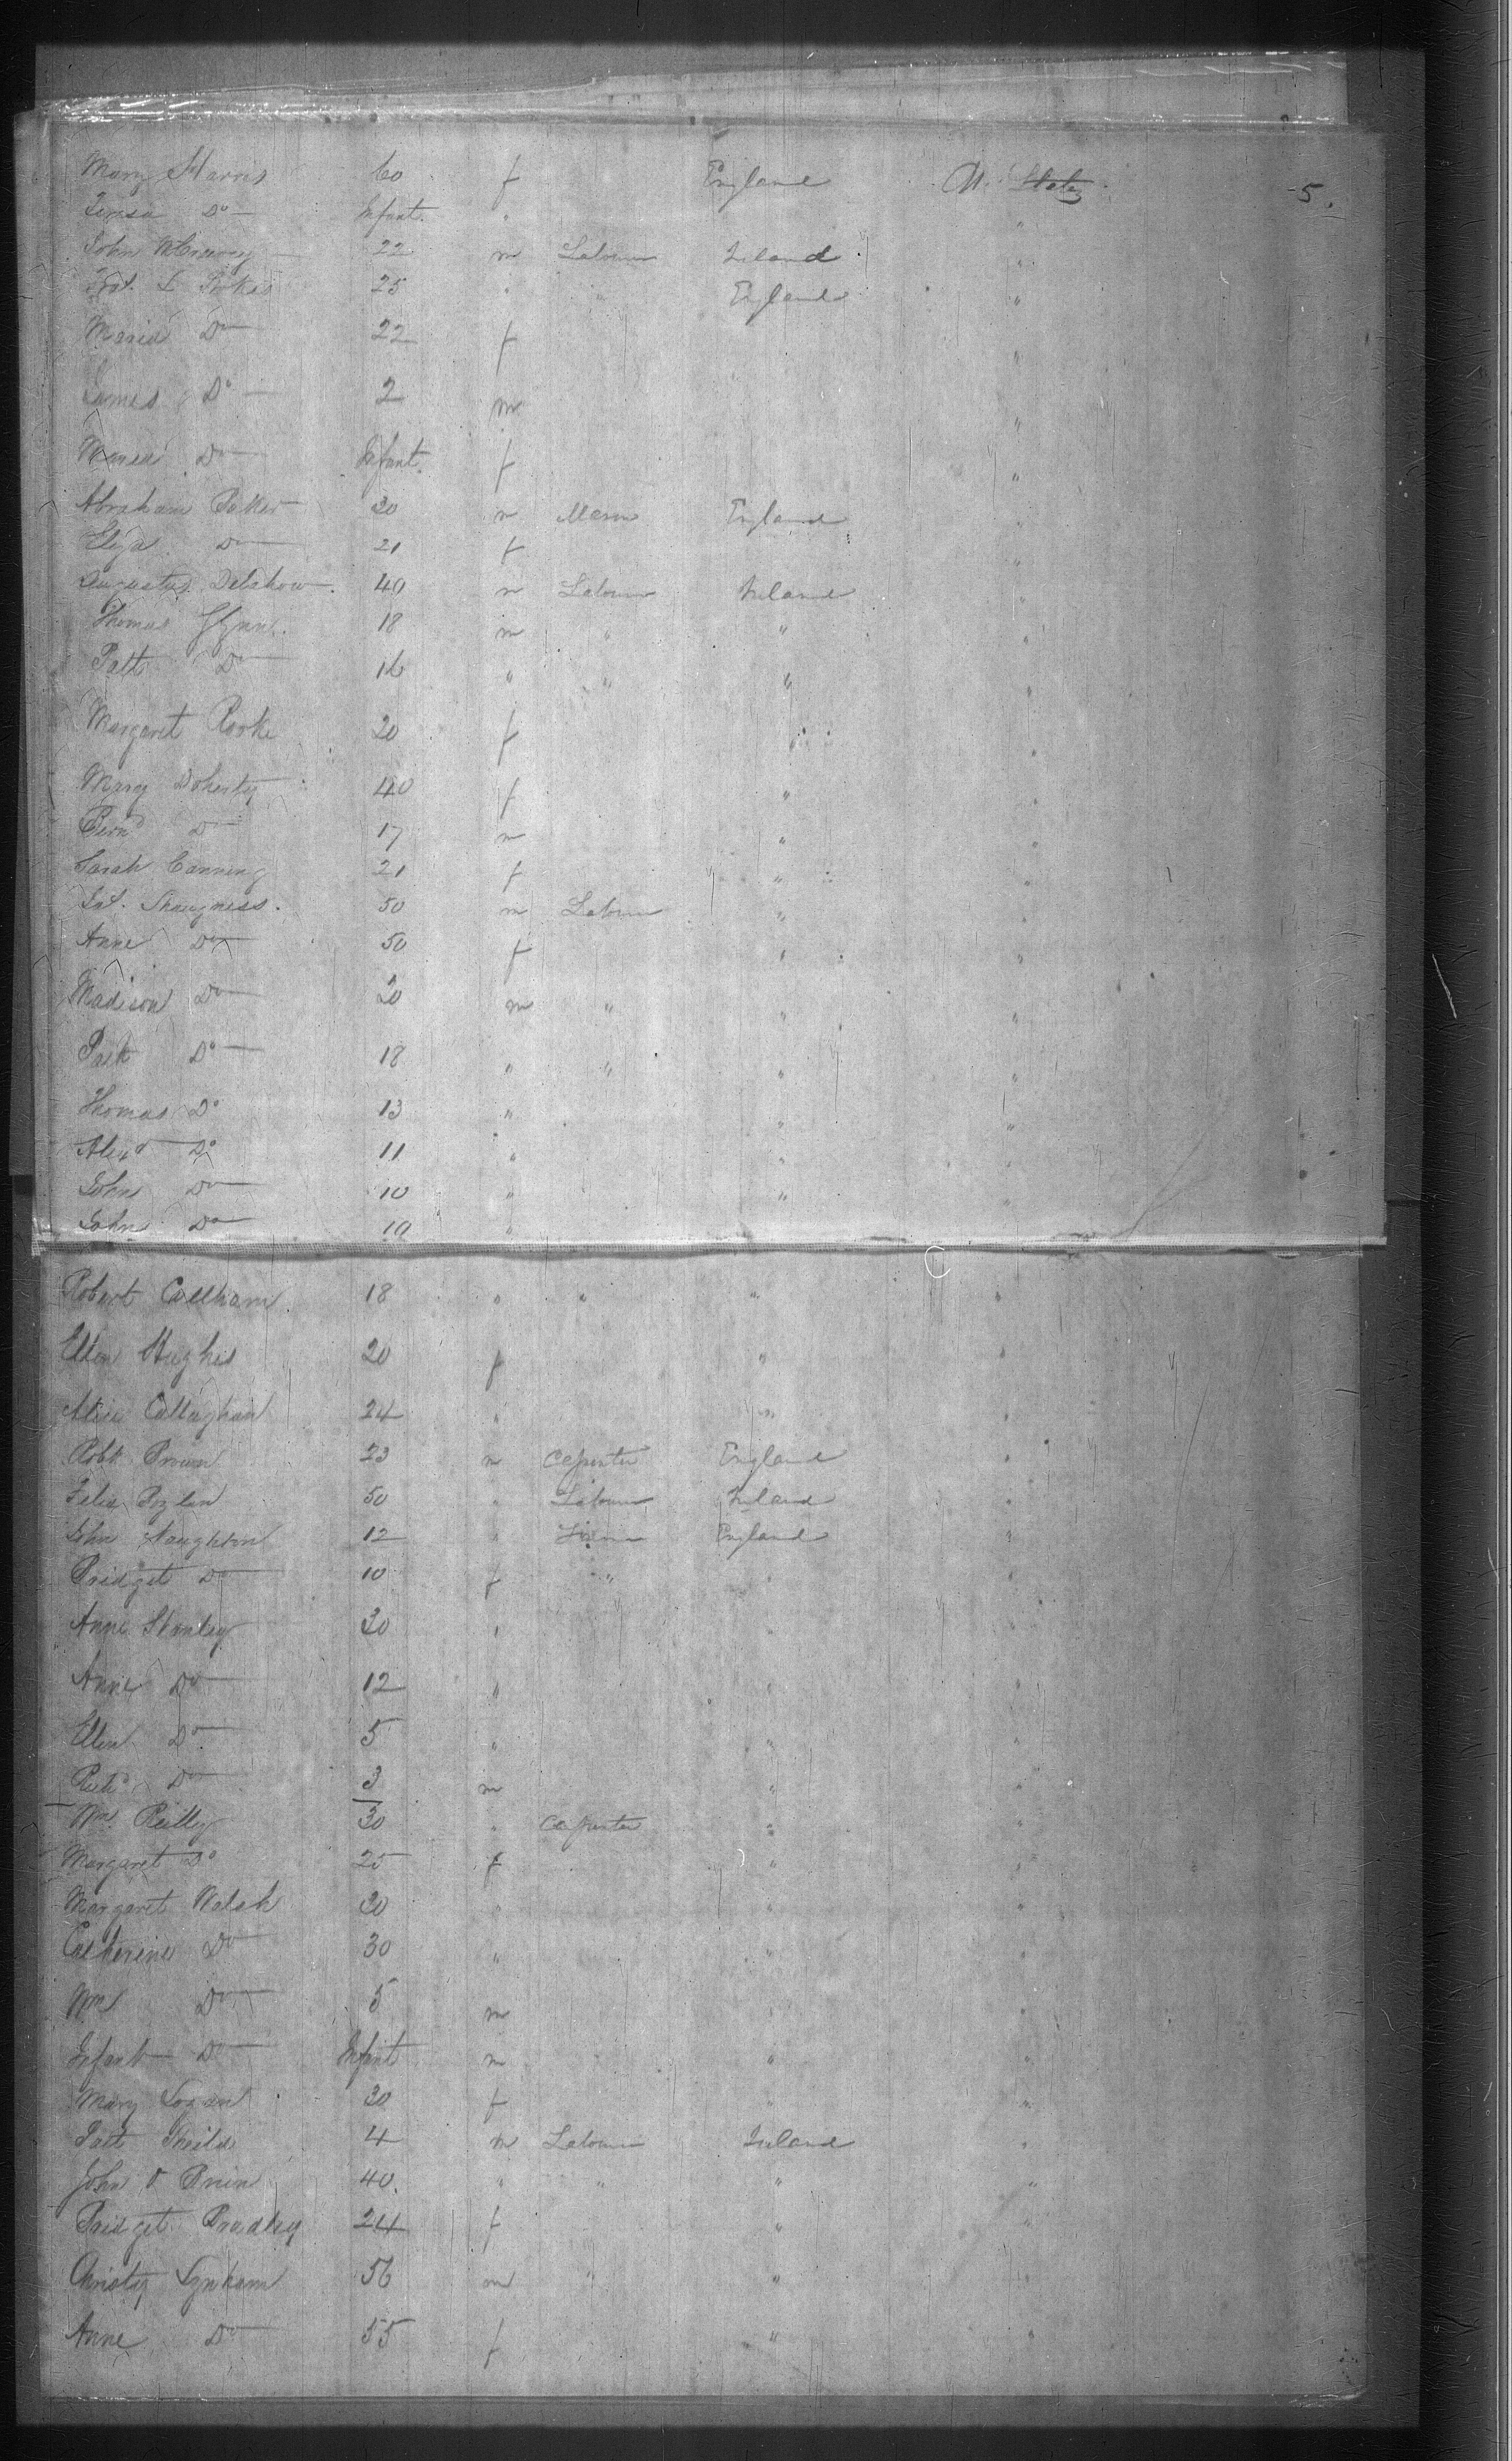 5.
Mary Harris 60 f England U. States
Teresa Do Infant "
John McCreevy 22 m Labourer Ireland "
25 " " England "
Maria Do 22 f "
James Do 2 m "
Maria Do Infant f "
Abraham Baker 30 m Mason England "
Eliza Do 21 f "
Augustus 40 m Labourer Ireland "
Thomas Glynn 18 m " " "
Patt Do 16 " " " "
Margaret Rooke 20 f " "
Mary Doherty 40 f " "
Bernd Do 17 m " "
Sarah Canning 21 f " "
Pat. Shaugness. 50 m Labourer " "
Anne Do 50 f " "
Madison Do 20 m " " "
Patk Do 18 " " " "
Thomas Do 13 " " "
Alexr Do 11 " " "
John Do 10 " " "
John Do 10 "
Robert Cullham 18 " " " "
Ellen Hughes 20 f " "
Alice Callaghan 24 " " "
Robt Brown 23 m Carpenter England "
Felix 50 " Labourer Ireland "
John Naughton 12 " England "
Bridget Do 10 f " " "
Anne Stanley 30 " " "
Anne Do 12 " " "
Ellen Do 5 " " "
Do 3 m " "
Wm. Reilly 30 " Carpenter " "
Margaret Do 25 f " "
Margaret Walsh 30 " " "
Catherine Do 30 " " "
Wm Do 5 m " "
Infant Do Infant m " "
Mary Logan 30 f " "
Patt Sheilds 4 m Labourer Ireland "
John O Brien 40. " " " "
Bridget Bradley 24 f " "
Christy Lynham 56 m " " "
Anne Do 55 f " "